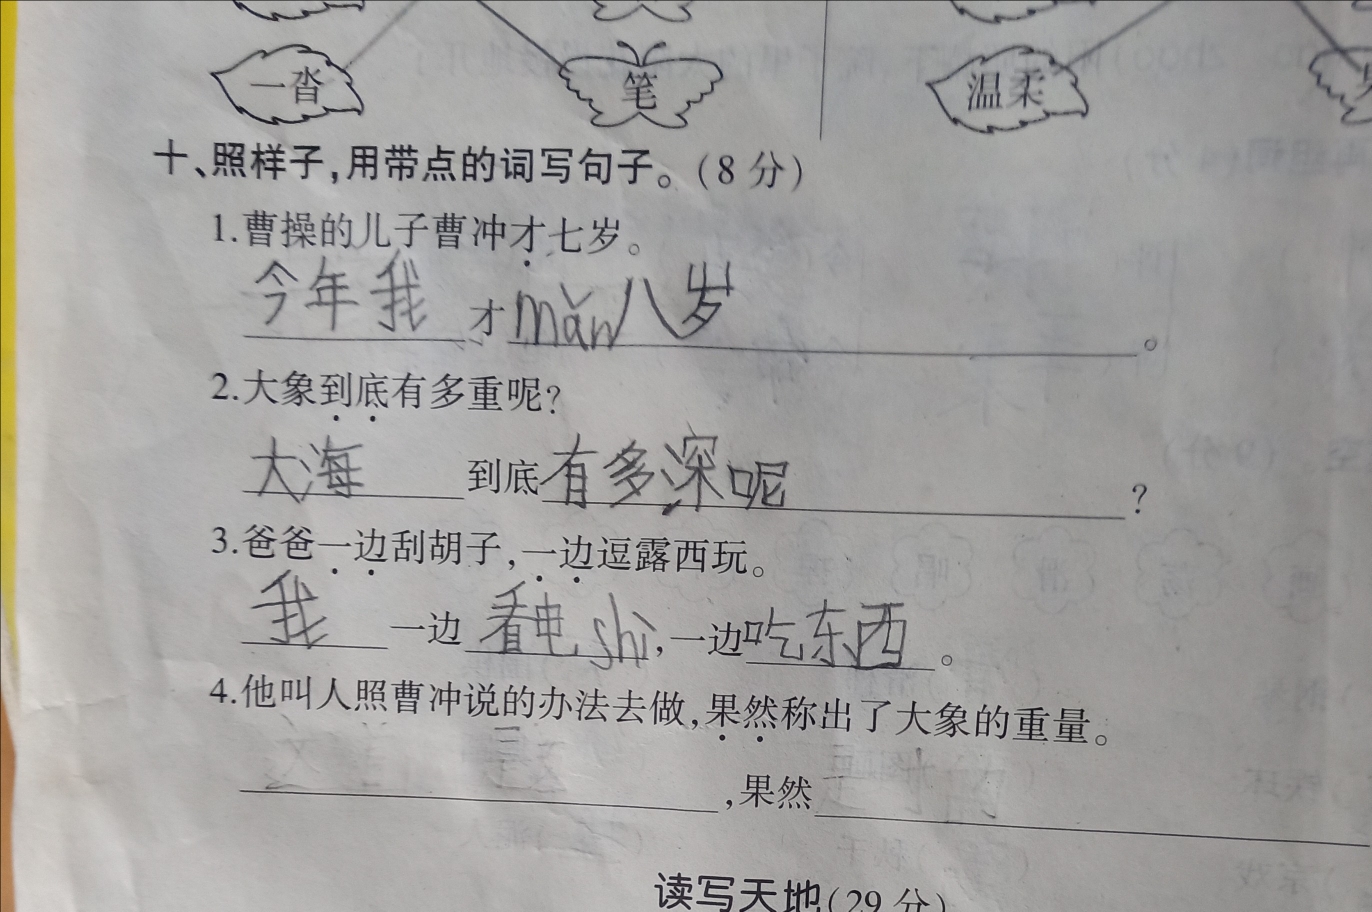 一沓 笔 温柔
十、照样子,用带点的词写句子。(8分)
1.曹操的儿子曹冲才七岁。
今年我才mǎn八岁。
2.大象到底有多重呢?
大海到底有多深呢?
3.爸爸一边刮胡子,一边逗露西玩。
我一边看电shì,一边吃东西。
4.他叫人照曹冲说的办法去做,果然称出了大象的重量。
,果然
读写天地(29分)